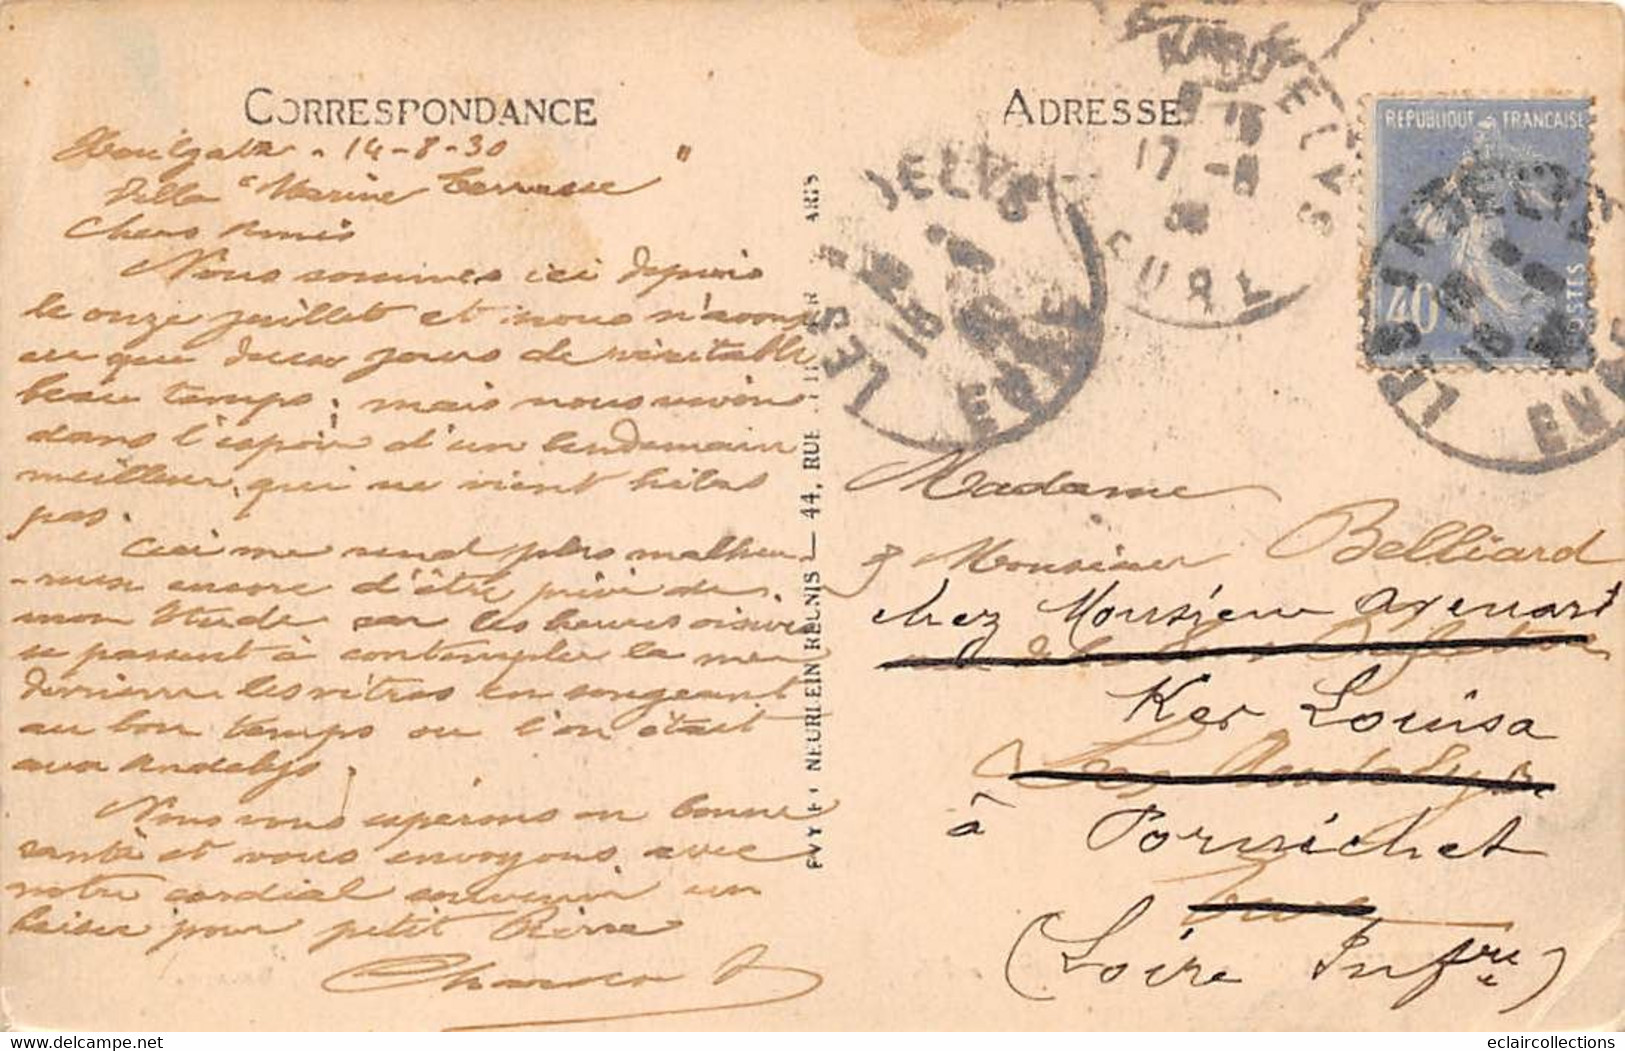 CORRESPONDANCE
Houlgate - 14-8-30
Villa "Marine Terrasse"
Chers Amis
Nous sommes ici depuis
le onze juillet et nous n'avons
eu que deux jours de véritable
beau temps; mais nous vivons
dans l'espoir d'un lendemain
meilleur, qui ne vient hélas
pas.
Ceci me rend plus malheu
-reux encore d'être privé de
mon étude car les heures oisives
se passent à contempler la mer
derrière les vitres en songeant
au bon temps ou l'on était
aux Andelys.
Nous vous espérons en bonne
santé et vous envoyons avec
notre cordial souvenir un
baiser pour petit Pierre
EVY ET NEURDEIN REUNIS - 44, RUE
ADRESSE
REPUBLIQUE FRANÇAISE
40
POSTES
LES ANDELYS
EURE
17 -8
LES ANDELYS
18
EURE
LES ANDELYS
18
EURE
Madame
& Monsieur Belliard
chez Monsieur
Ker Louisa
Les Andelys
à Pornichet
Eure
(Loire Infre)
eclaircollections